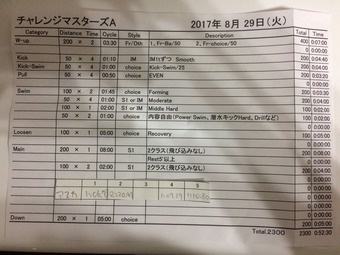 チャレンジマスターズA 2017年 8月 29日(火)
Category Distance Time Cycle Style Description Total Time
W-up 200 × 2 03:30 Fr/Oth 1, Fr-Ba/50 2, Fr-choice/50 400 0:07:00
0 0:00:00
Kick 50 × 4 01:10 IM IM1tずつ Smooth 200 0:04:40
Kick-Swim 50 × 4 01:00 choice Kick-Swim/25 200 0:04:00
Pull 50 × 4 00:50 choice EVEN 200 0:03:20
0 0:00:00
Swim 100 × 2 01:45 choice Forming 200 0:03:30
50 × 4 S1 or IM Moderate 200 0:04:00
100 × 1 02:00 S1 or IM Middle Hard 100 0:02:00
50 × 4 choice 内容自由(Power Swim、潜水キックHard、Drillなど) 200
0 0:00:00
Loosen 100 × 1 05:00 choice Recovery 100 0:05:00
0 0:00:00
Main 200 × 1 08:00 S1 2クラス(飛び込みなし) 200 0:08:00
Rest5'以上
100 × 2 02:00 S1 2クラス(飛び込みなし) 200 0:04:00
0 0:00:00
1 2 3 4 5
0:00:00
0:00:00
Down 200 × 1 05:00 choice 200 0:05:00
Total.2300 2300 0:52:30